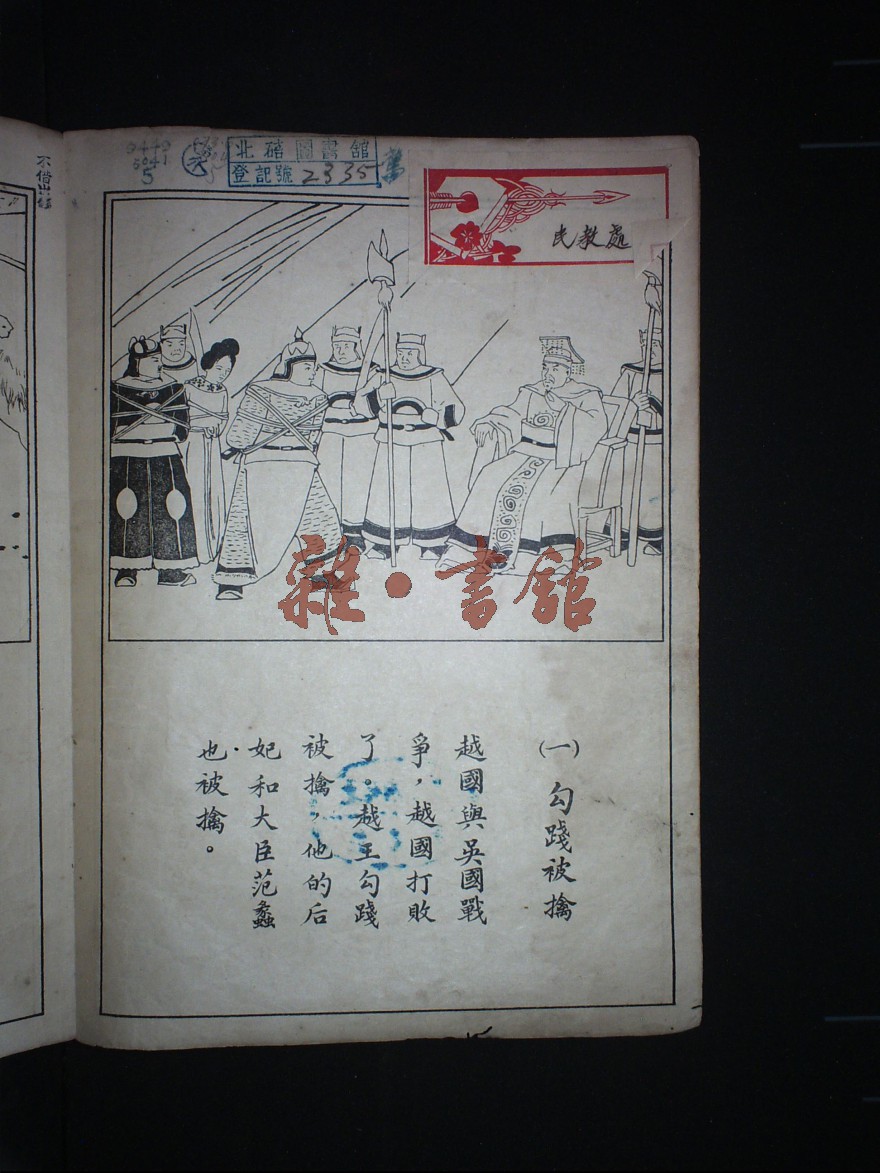 北碚圖書館
登記號 2335
不借出館
民教處
雜·書館
(一) 勾踐被擒
越國與吳國戰
爭，越國打敗
了。越王勾踐
被擒，他的后
妃和大臣范蠡
也被擒。